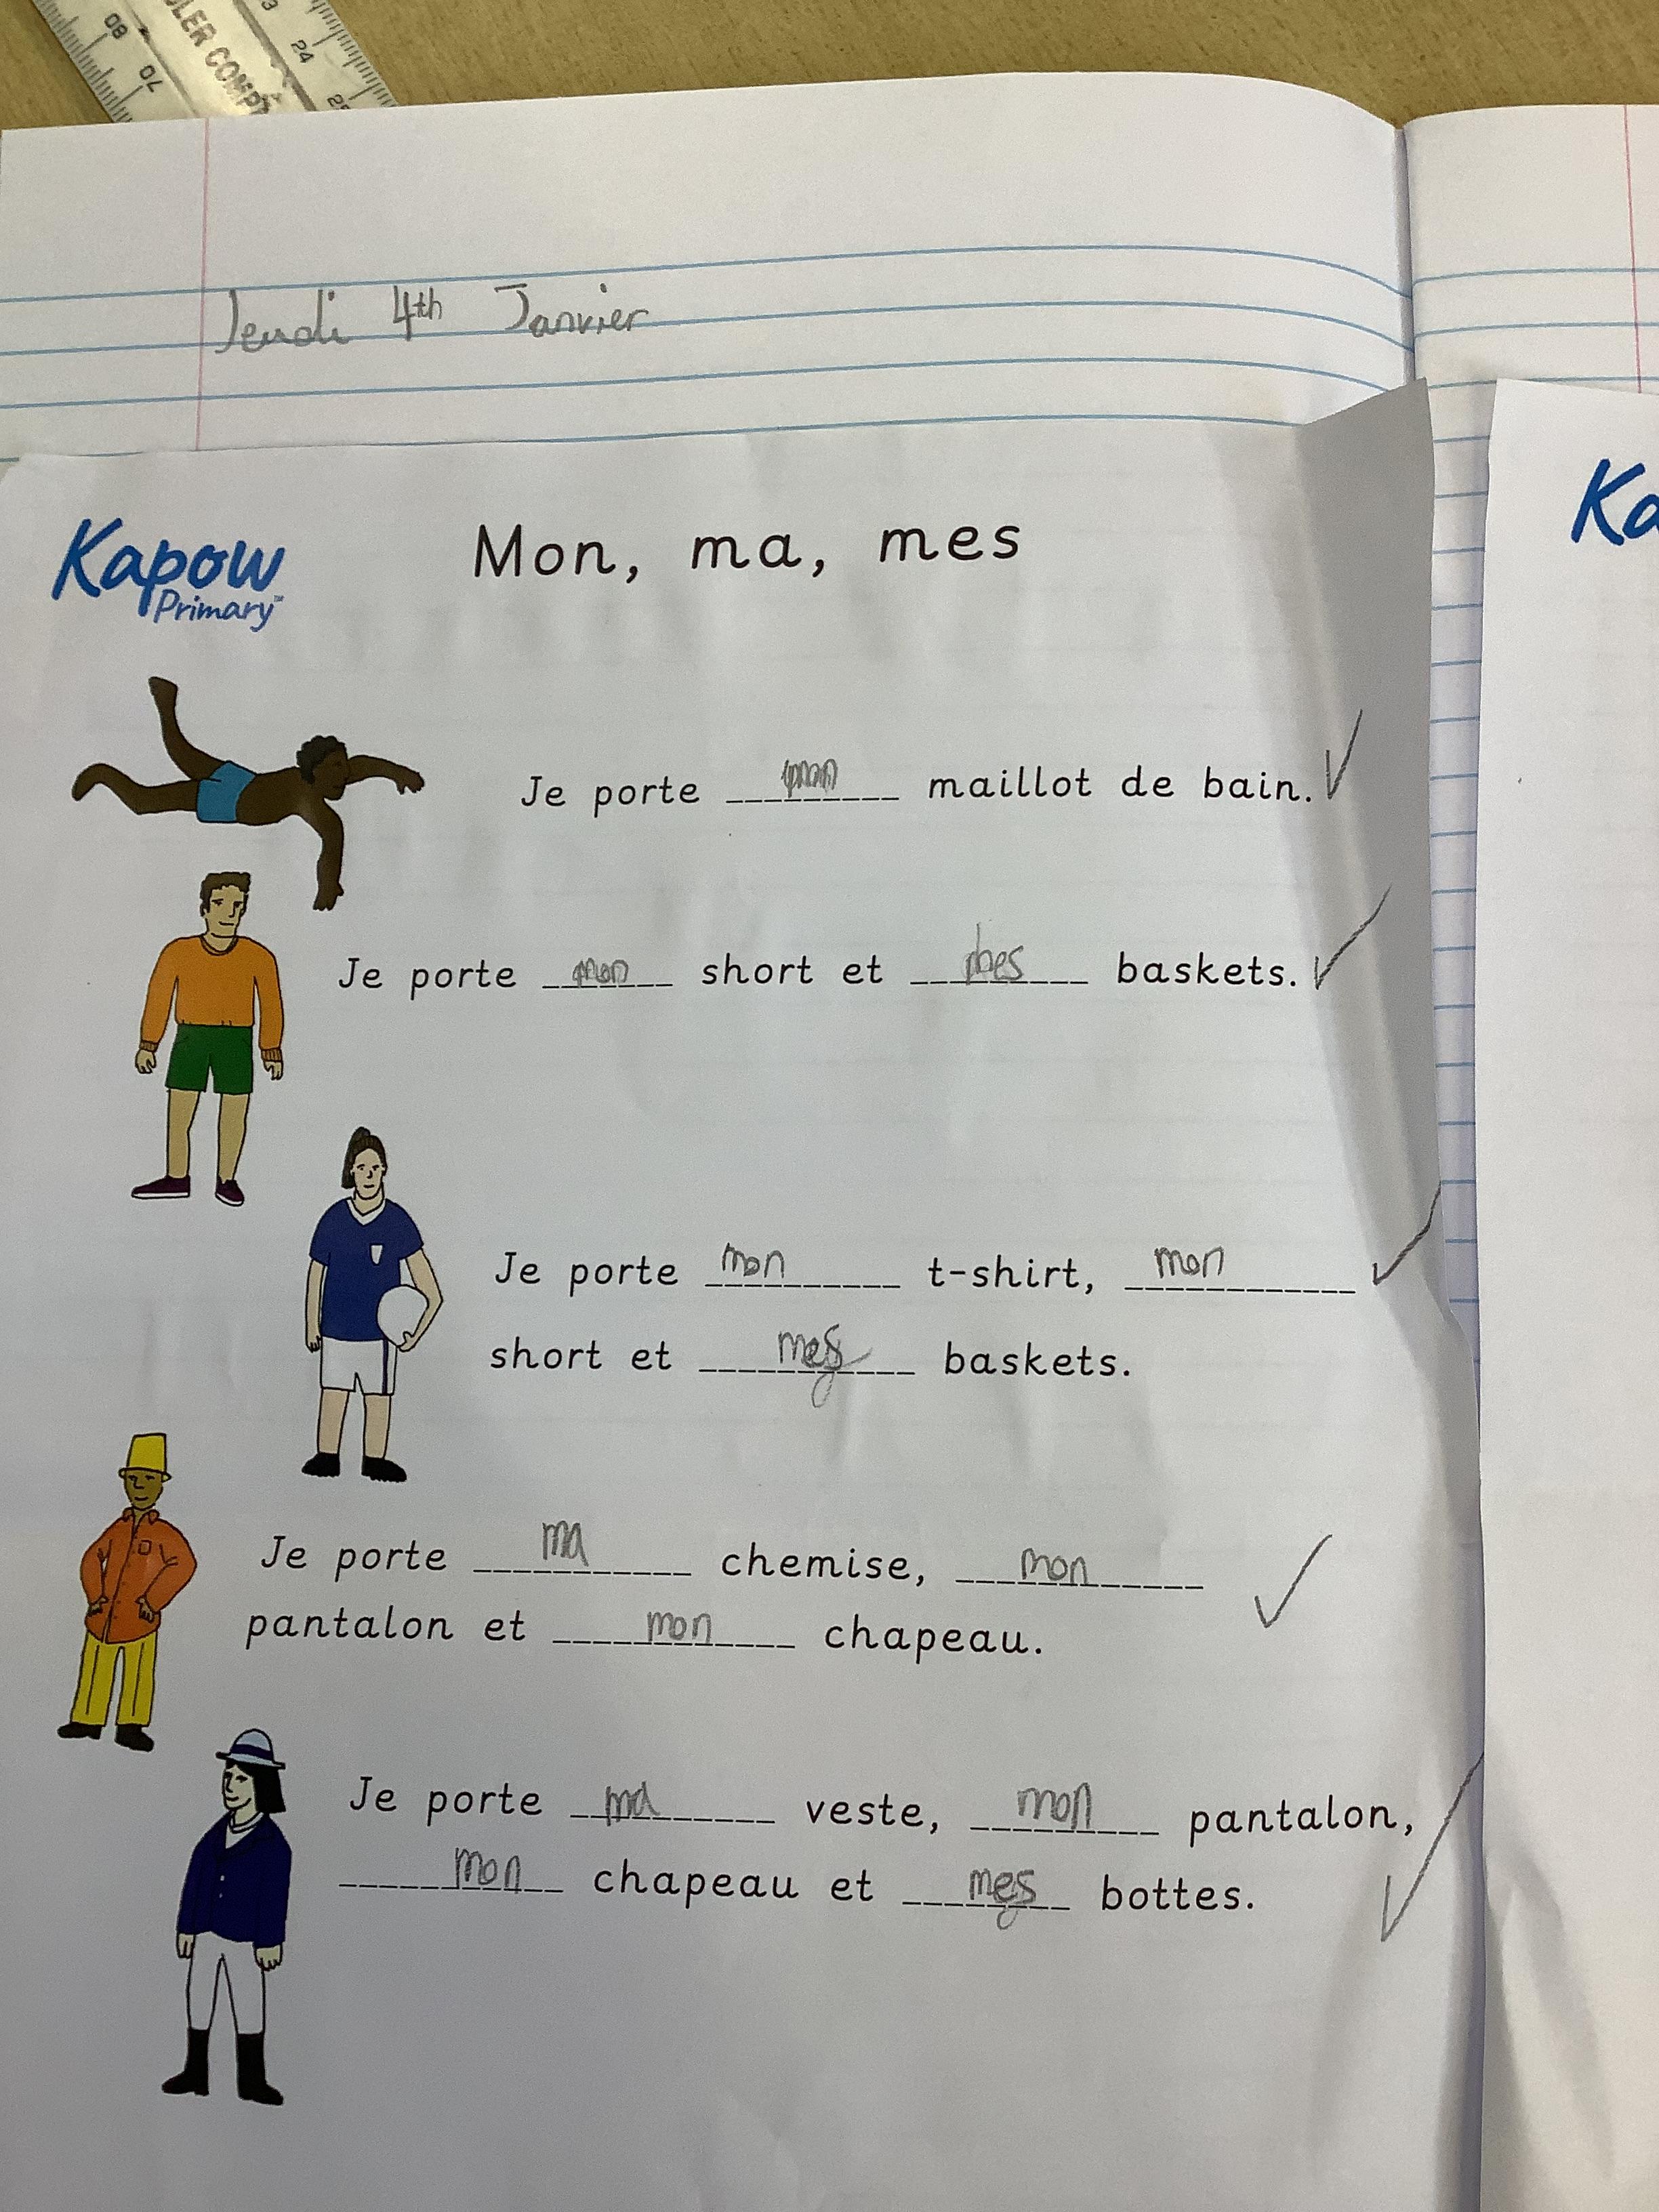 08
07
LER COMP
24
Jeudi 4th Janvier
Kapow
Primary™
Mon, ma, mes
Je porte mon maillot de bain.
Je porte mon short et mes baskets.
Je porte mon t-shirt, mon
short et mes baskets.
Je porte ma chemise, mon
pantalon et mon chapeau.
Je porte ma veste, mon pantalon,
mon chapeau et mes bottes.